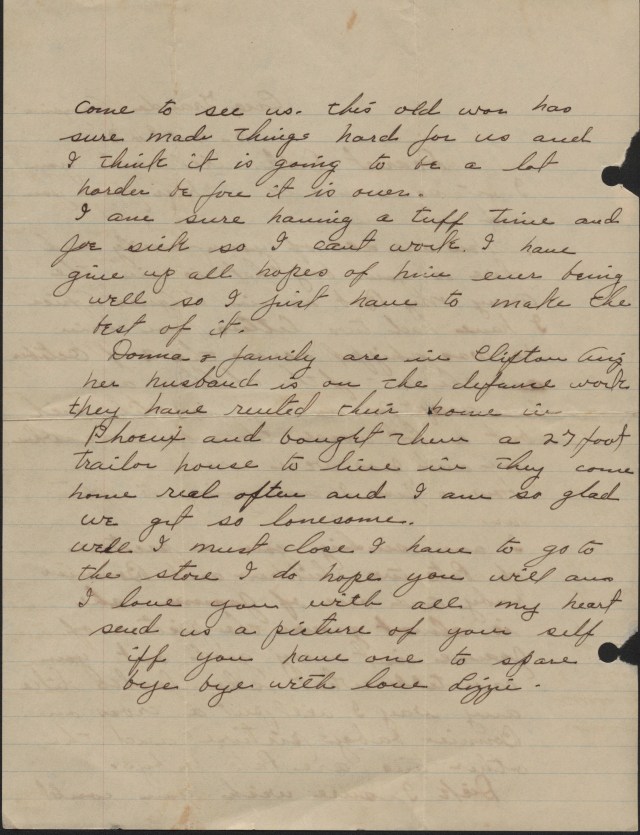 come to see us. this old war has
sure made things hard for us and
I think it is going to be a lot
harder be fore it is over.
I am sure having a tuff time and
Joe sick so I cant work. I have
give up all hopes of him ever being
well so I just have to make the
best of it.
Donna & family are in Clifton Ariz
her husband is on the defance work
they have rented their home in
Phoenix and bought them a 27 foot
trailor house to live in they come
home real often and I am so glad
we get so lonesome.
well I must close I have to go to
the store I do hope you will ans
I love you with all my heart
send us a picture of your self
iff you have one to spare
bye bye with love Lizzie.